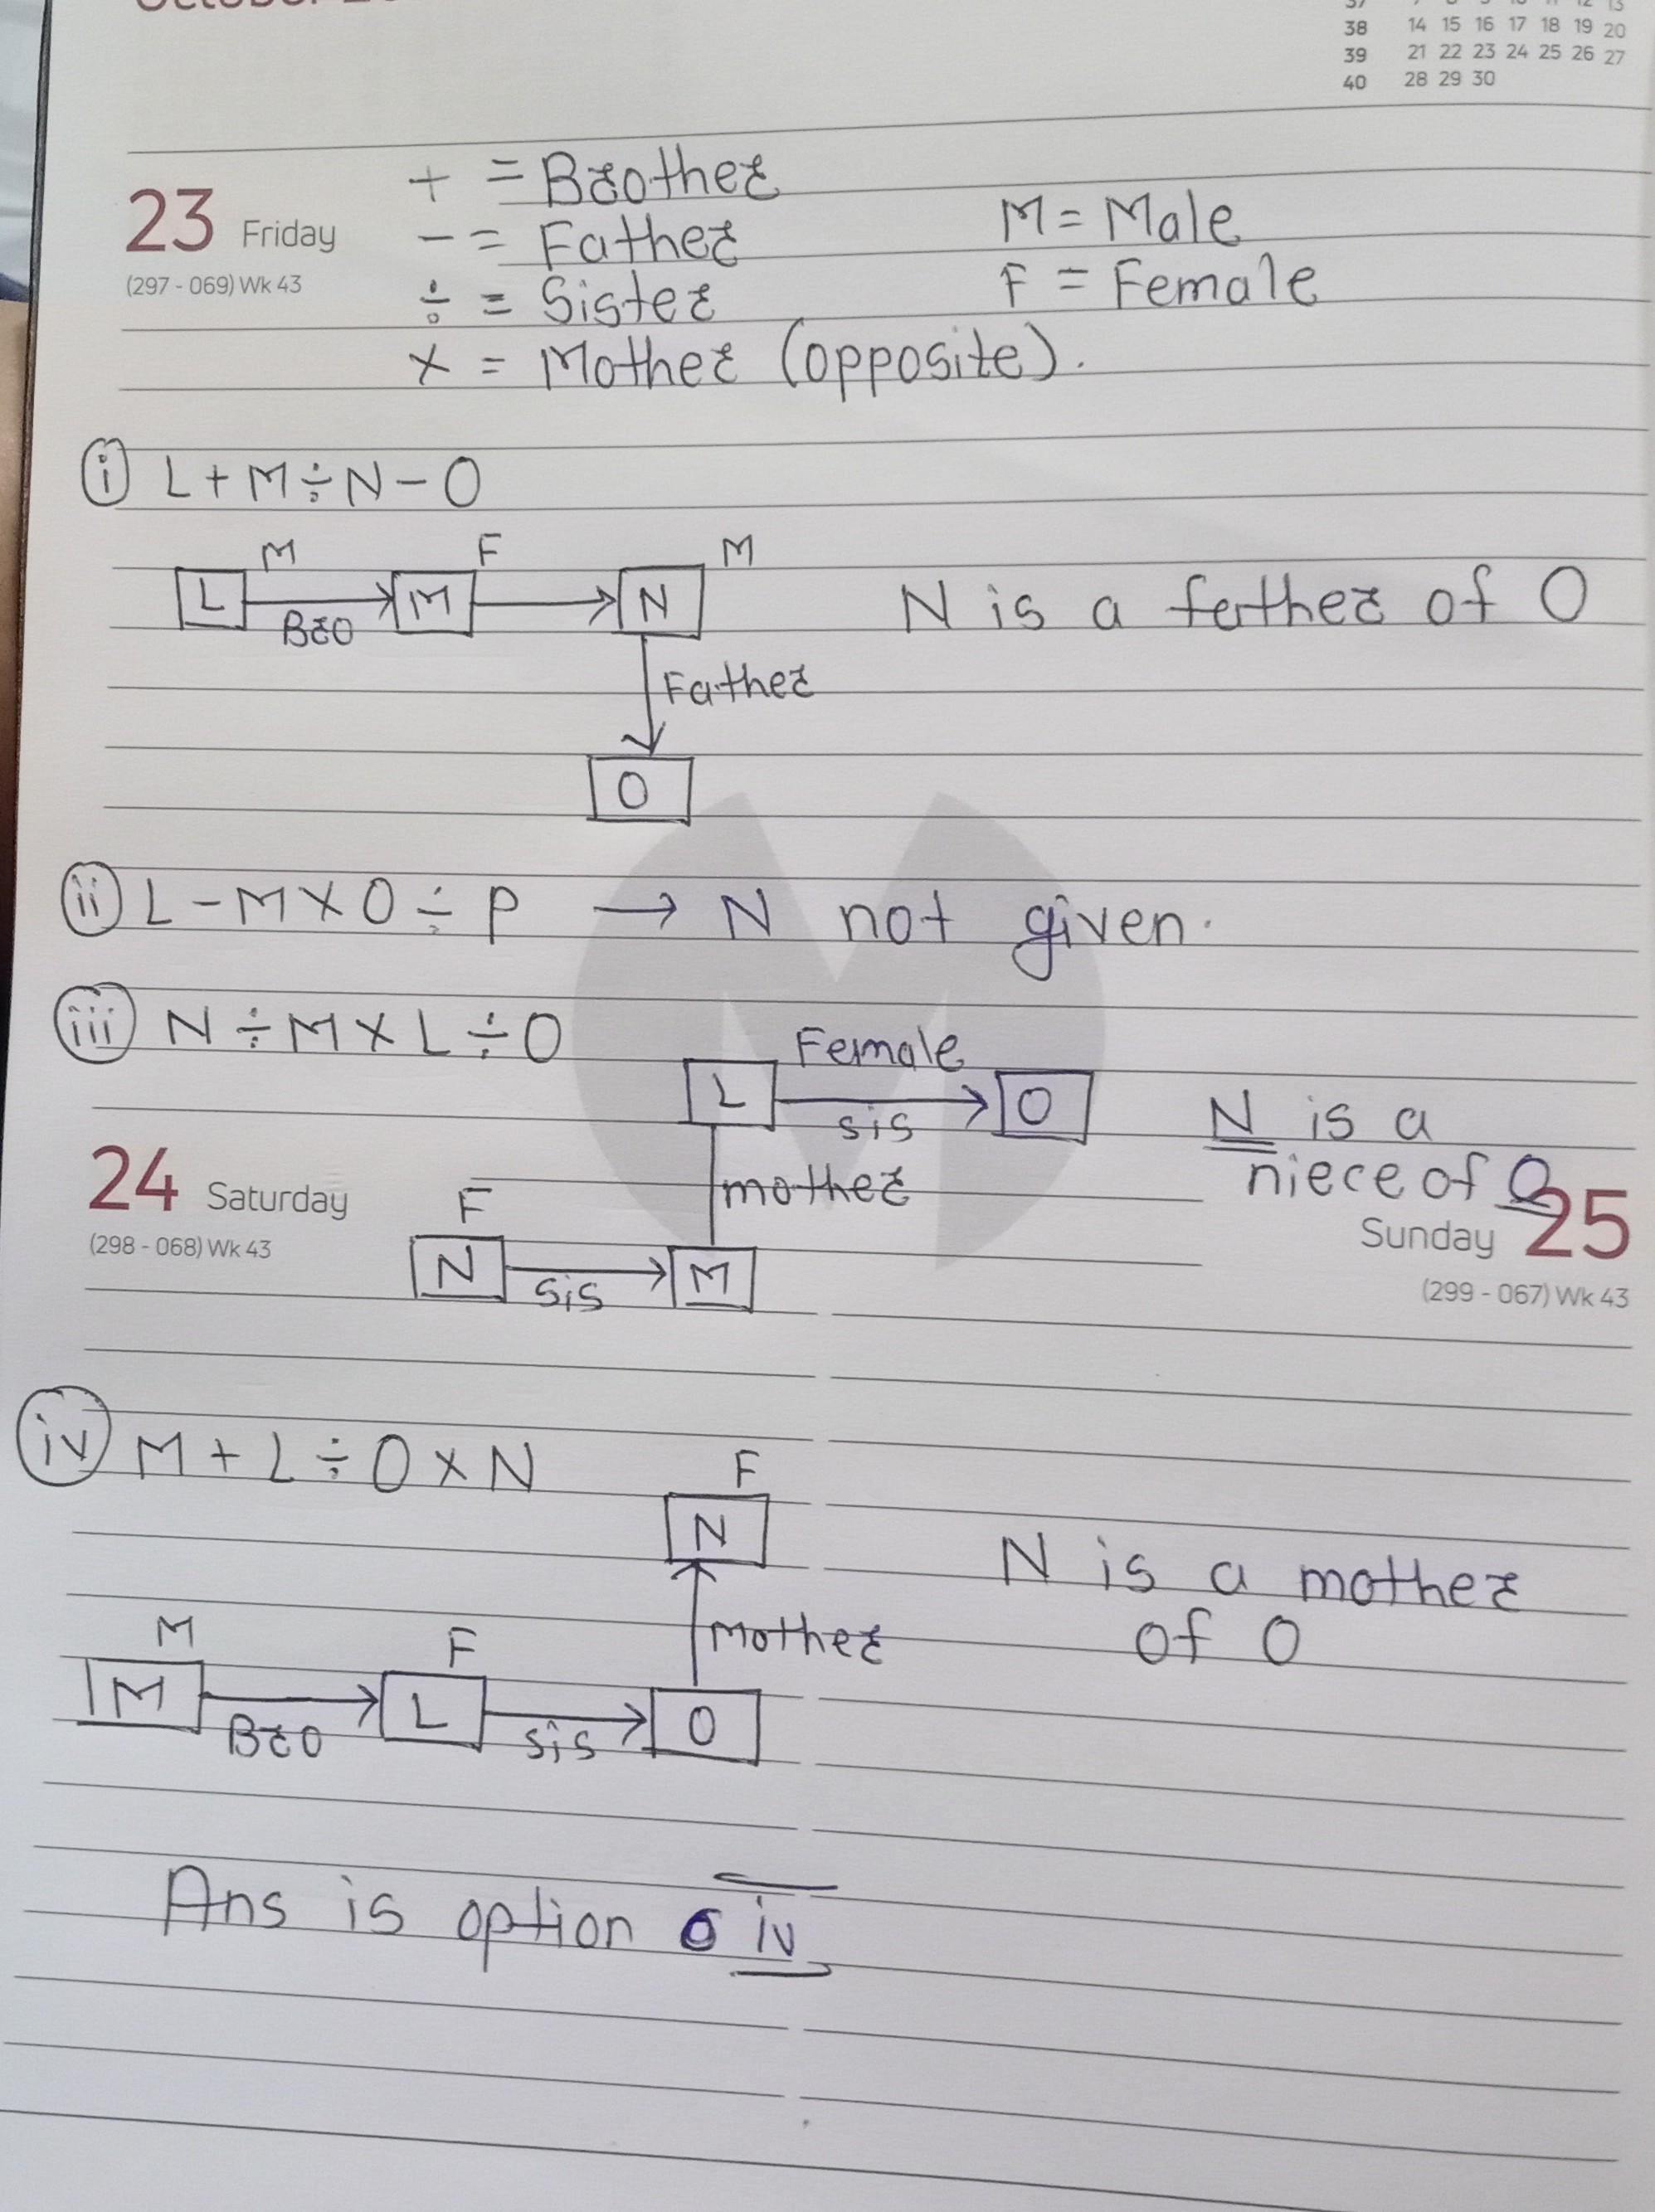 37 7 8 9 10 11 12 13
38 14 15 16 17 18 19 20
39 21 22 23 24 25 26 27
40 28 29 30
23 Friday
(297 - 069) Wk 43
+ = Brother
- = Father
÷ = Sister
X = Mother (opposite).
M = Male
F = Female
(i) L + M ÷ N - O
M F M
L M N
Bro
N is a father of O
Father
O
(ii) L - M X O ÷ P → N not given.
(iii) N ÷ M X L ÷ O
Female
L O
sis
N is a
niece of O
mother
24 Saturday
(298 - 068) Wk 43
25
Sunday
(299 - 067) Wk 43
F
N M
Sis
(iv) M + L ÷ O x N
F
N
N is a mother
of O
Mother
M F
M L O
Bro sis
Ans is option iv